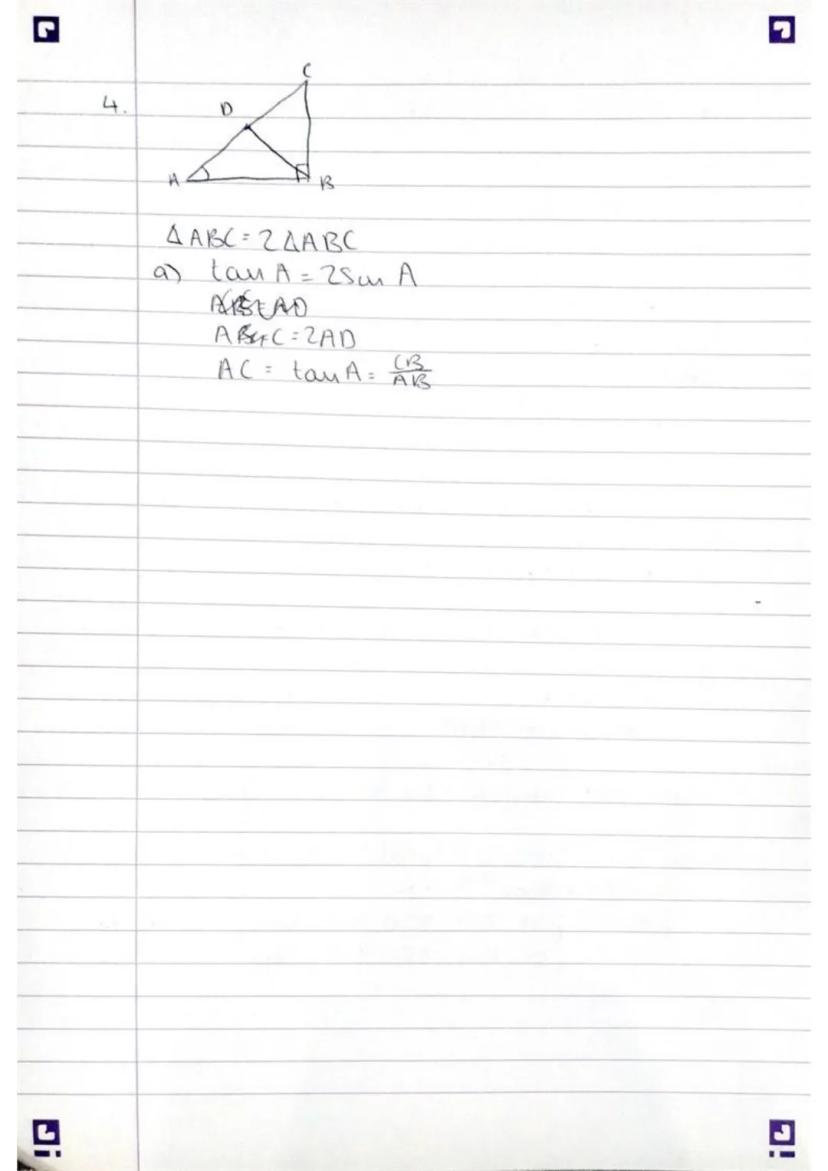 C
4.
D
A
B
Δ ABC = 2 Δ ABC
a) tan A = 2 Sin A
C = 2AD
AC = tan A = CB/AB